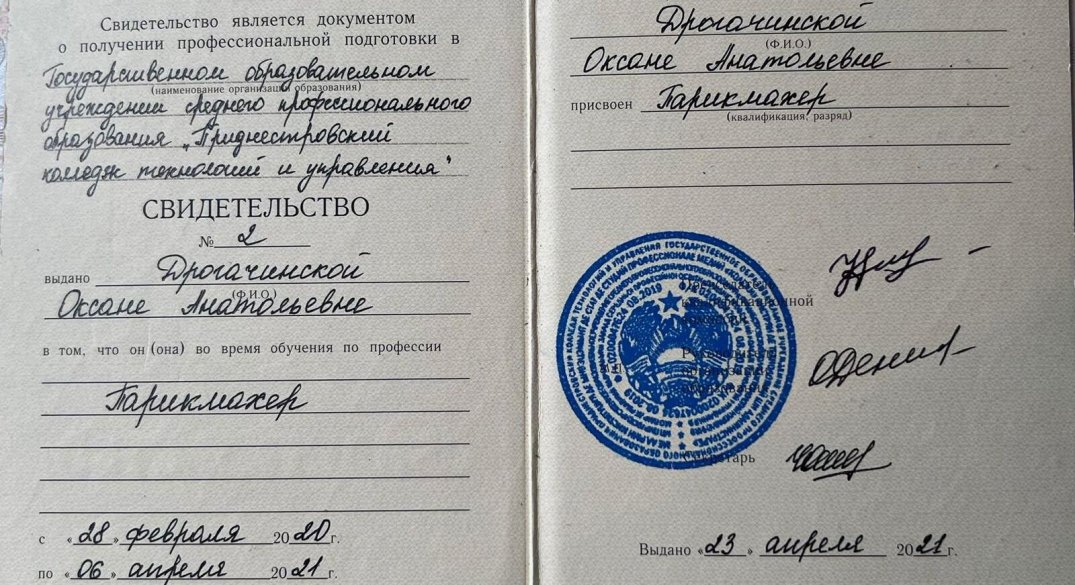 Свидетельство является документом
о получении профессиональной подготовки в
Государственном образовательном
(наименование организации образования)
учреждении среднего профессионального
образования „Приднестровский
колледж технологий и управления"
СВИДЕТЕЛЬСТВО
№ 2
выдано Дрогачинской
(Ф.И.О.)
Оксане Анатольевне
в том, что он (она) во время обучения по профессии
Парикмахер
с «28» февраля 2020г.
по «06» апреля 2021г.
Дрогачинской
(Ф.И.О.)
Оксане Анатольевне
присвоен Парикмахер
(квалификация, разряд)
Председатель
квалификационной
Руководитель
организации
образования
Секретарь
Выдано «23» апреля 2021г.